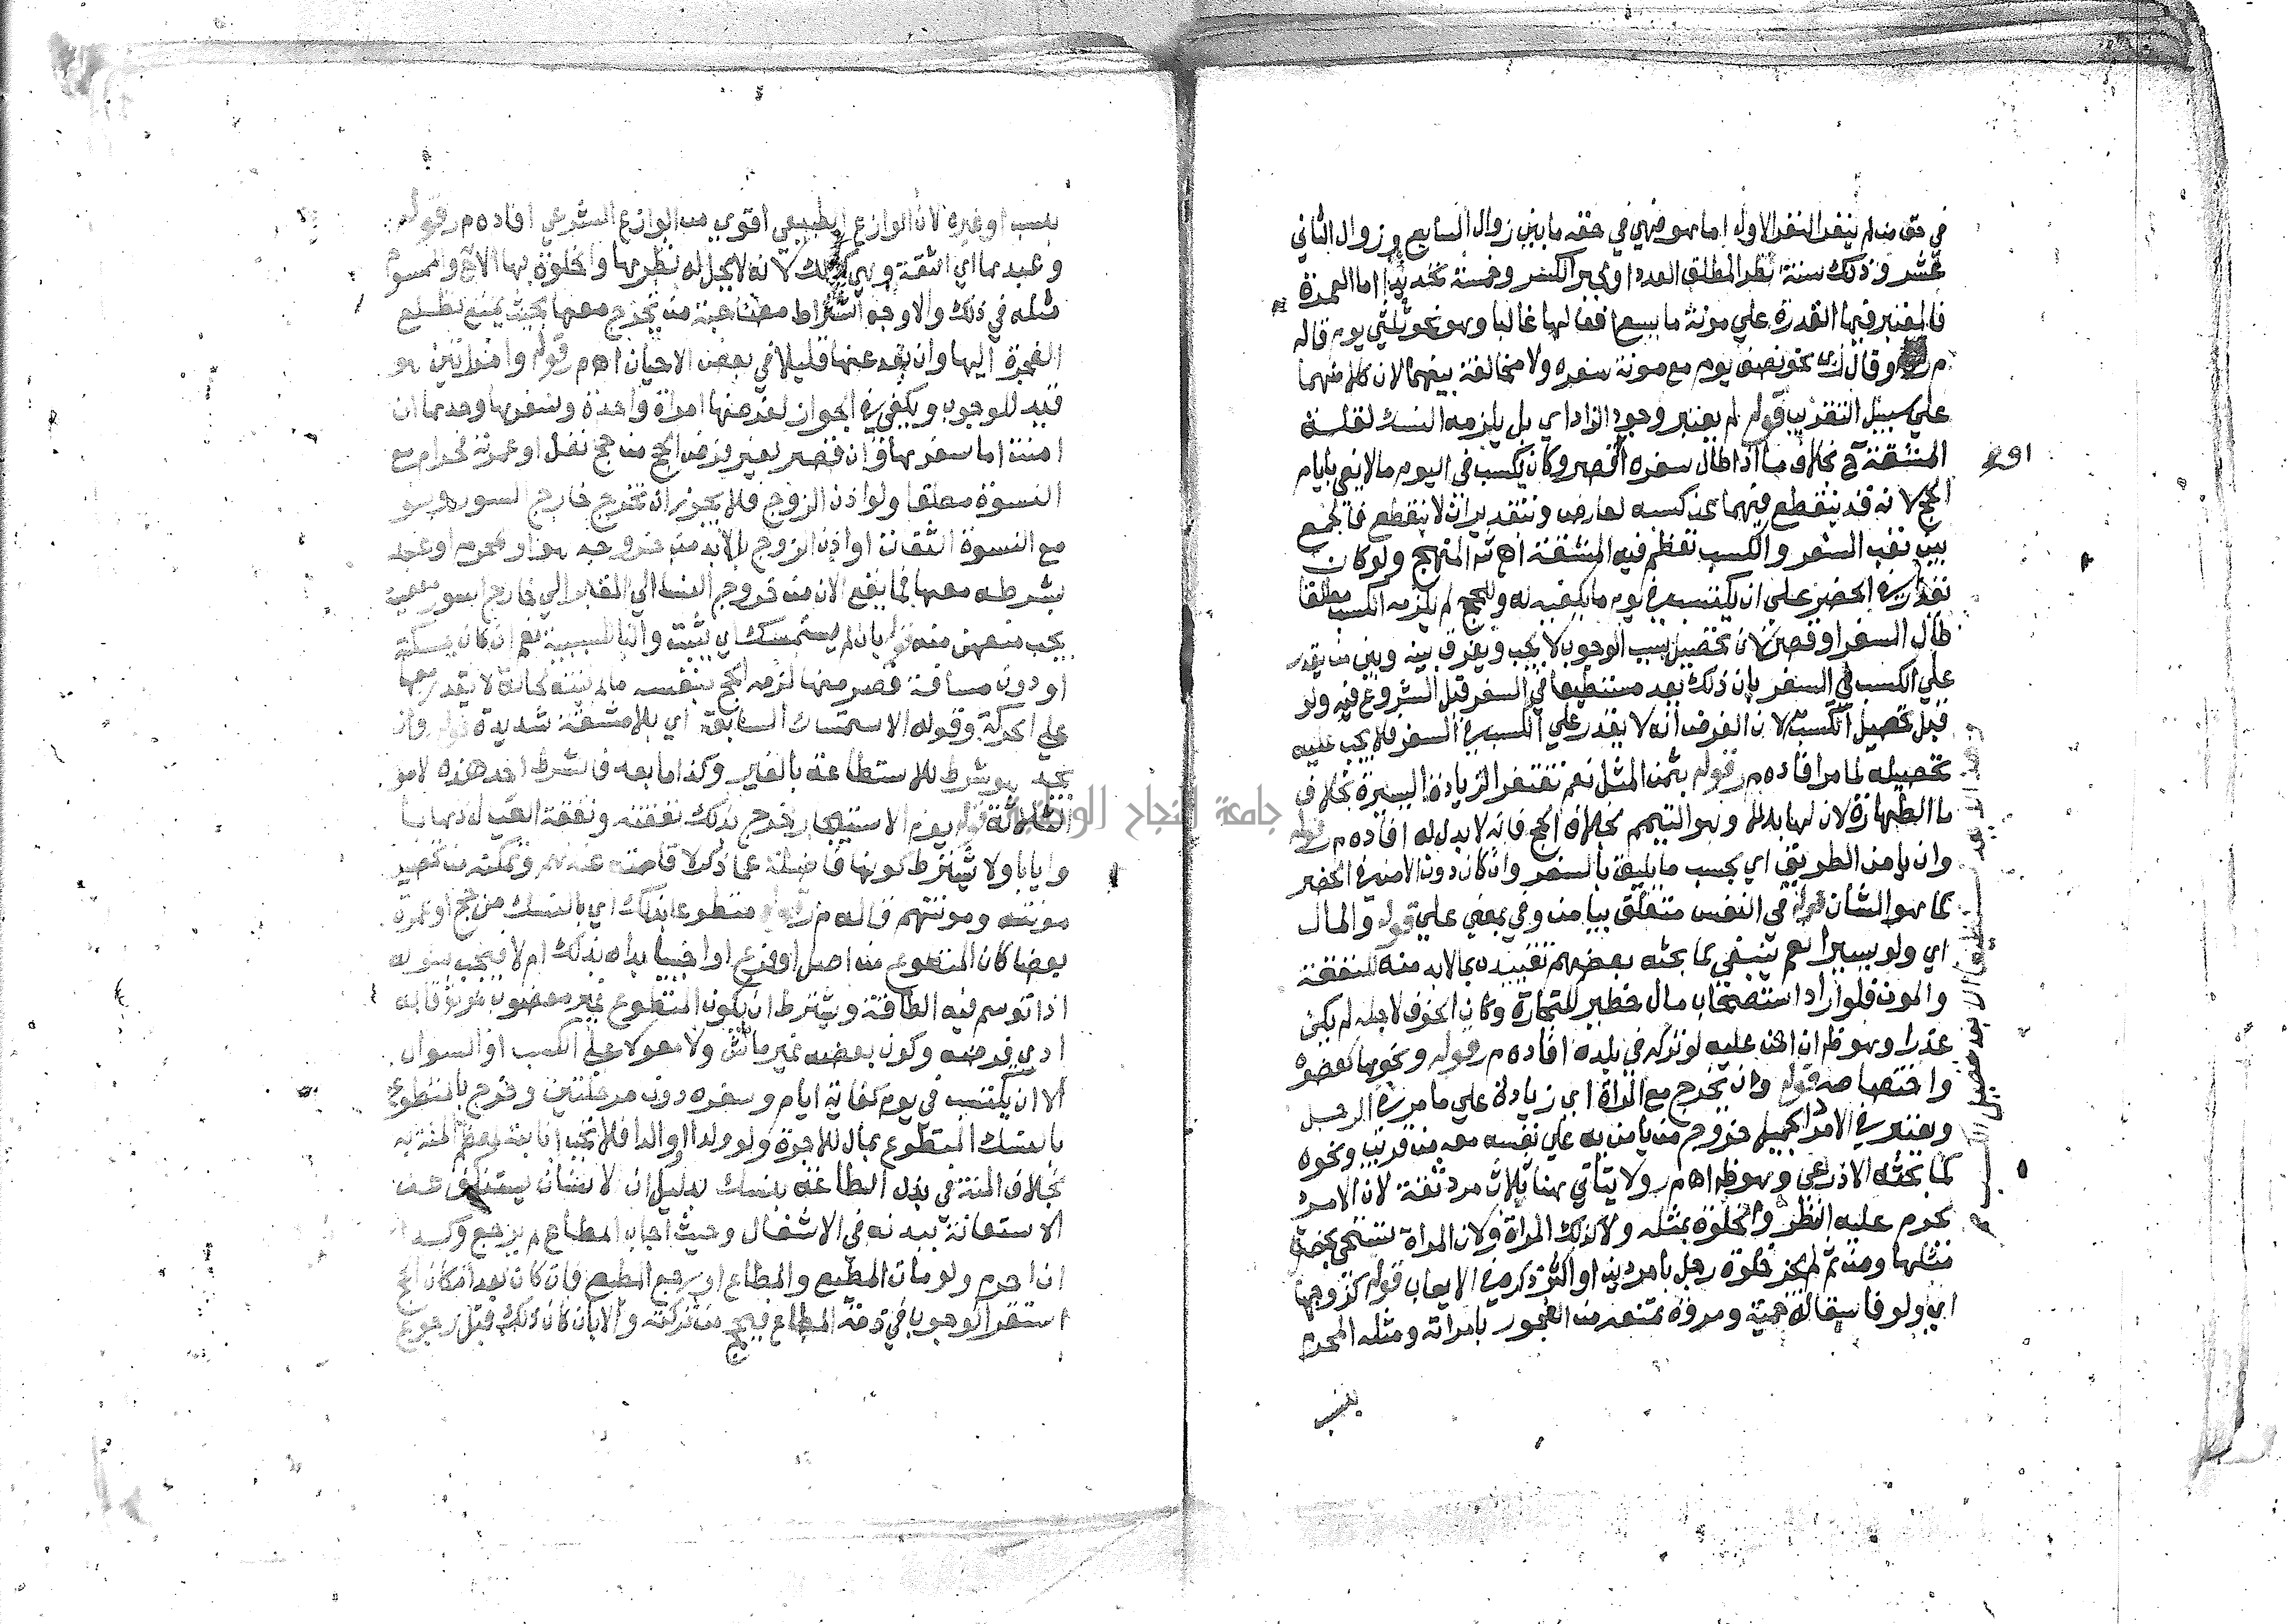 في حق من لم ينفر النفر الاول اما هو فهي في حقه ما بين زوال السابع وزوال الثاني
عشر وذلك ستة نظرا لمطلق العدد او لجبر الكسر وخمسة تحديدا اما العمرة
فالمعتبر فيها القدرة علي مونة ما يسع افعالها غالبا وهو نحو ثلثي يوم قاله
م وقال نحو نصف يوم مع مونة سفره ولا مخالفة بينهما لان كلا منهما
علي سبيل التقريب قوله لم يعتبر وجود الزاد اي بل يلزمه النسك لقلة
المشقة ح بخلاف ما اذا طال سفره او قصر وكان يكسب في اليوم ما لا يفي بايام
الحج لانه قد ينقطع فيهما عن كسبه لعارض وبتقدير ان لا ينقطع فالجمع
بين تعب السفر والكسب تعظم فيه المشقة اه شرح المنهج ولو كان
يقدر في الحضر علي ان يكتسب في يوم ما يكفيه له وللحج لم يلزمه الكسب مطلقا
طال السفر او قصر لان تحصيل سبب الوجوب لا يجب ويفرق بينه وبين من يقدر
علي الكسب في السفر بان ذلك يعد مستطيعا في السفر قبل الشروع فيه ولو
قبل تحصيل الكسب لان الفرض انه لا يقدر علي الكسب في السفر فلا يجب عليه
تحصيله لما مر افاده م ر قوله بثمن المثل نعم تغتفر الزيادة اليسيرة بخلاف
ما الطهارة لان لها بدلا وهو التيمم بخلاف الحج فانه لا بدل له افاده م ر قوله
وان يامن الطريق اي بحسب ما يليق بالسفر وان كان دون الامن في الحضر
كما هو الشان قوله في النفس متعلق بيامن وفي بمعني علي قوله والمال
اي ولو يسيرا نعم ينبغي كما بحثه بعضهم تقييده بما لا بد منه للنفقة
والمون فلو اراد استصحاب مال خطير للتجارة وكان الخوف لاجله لم يكن
عذرا وهو ظ ان امن عليه لو تركه في بلده افاده م ر قوله ونحوها كعضوه
واختصاصه قوله وان يخرج مع المراة اي زيادة علي ما مر في الرجل
ويعتبر في الامرد الجميل خروج من يامن به علي نفسه معه من قريب ونحوه
كما بحثه الاذرعي وهو ظ اه م ر ولا يتاتي هنا ثلاث مرد ثقة لان الامرد
يحرم عليه النظر والخلوة بمثله ولا كذلك المراة ولان المراة تستحي بحضرة
مثلها ومن ثم لم تجز خلوة رجل بامردين او اكثر ذكره في الايعاب قوله كزوجها
اي ولو فاسقا له حمية ومروة تمنعه من الفجور بامراته ومثله المحرم
بنسب
بنسب او غيره لان الوازع الطبيعي اقوي من الوازع الشرعي افاده م ر قوله
وعبدها اي الثقة وهي كذلك لانه لا يحل له نظرها والخلوة بها الا ح والممسوح
مثله في ذلك والاوجه اشتراط مصاحبة من يخرج معها بحيث يمنع تطلع
الفجرة اليها وان بعد عنها قليلا في بعض الاحيان اه م ر قوله وامراتين هو
قيد للوجوب ويكفي في الجواز لفرضها امراة واحدة وسفرها وحدها ان
امنت اما سفرها وان قصر لغير فرض الحج من حج نفل او عمرة فحرام مع
النسوة مطلقا ولو اذن الزوج فلا يجوز ان تخرج خارج السور ولو
مع النسوة الثقات او اذن الزوج بل لا بد من خروجه هو او محرم او عبد
بشرطه معها فما يقع الان من خروج النسا الي المقابر الي خارج السور معصية
يجب منعهن منه قوله بان لم يستمسك اي يثبت والبا للسببية نعم ان كان بمكة
او دون مسافة قصر منها لزمه الحج بنفسه ما لم ينته لحالة لا يقدر معها
علي الحركة وقوله الاستمساك السابق اي بلا مشقة شديدة قوله وان
يجد هو شرط للاستطاعة بالغير وكذا ما بعده فالشرط احد هذه الامور
الثلاثة قوله يوم الاستئجار خرج بذلك نفقته ونفقة العيال ذهابا
وايابا ولا يشترط كونها فاضلة عما ذكر لاقامته عندهم وتمكنه من تحصيل
مونته ومونتهم قاله م ر قوله متطوعا بذلك اي بالنسك من حج او عمرة
بعضا كان المتطوع من اصل او فرع او اجنبيا بداه بذلك ام لا فيجب سواله
اذا توسم فيه الطاعة ويشترط ان يكون المتطوع غير معضوب موثوقا به
ادي فرضه وكون بعضه غير ماش ولا معولا علي الكسب او السوال
الا ان يكتسب في يوم كفاية ايام وسفره دون مرحلتين وخرج بالمتطوع
بالنسك المتطوع بمال للاجرة ولو ولدا او والدا فلا تجب انابته لعظم المنة به
بخلاف المنة في بذل الطاعة بنسك بدليل ان الانسان يستنكف عن
الاستعانة ببدنه في الاشغال وحيث اجاب المطاع لم يرجع وكذا
ان احرم ولو مات المطيع والمطاع او رجع المطيع فان كان بعد امكان الحج
استقر الوجوب في ذمة المطاع فيحج من تركته والا بان كان ذلك قبل رجوع
جامعة النجاح الوطنية